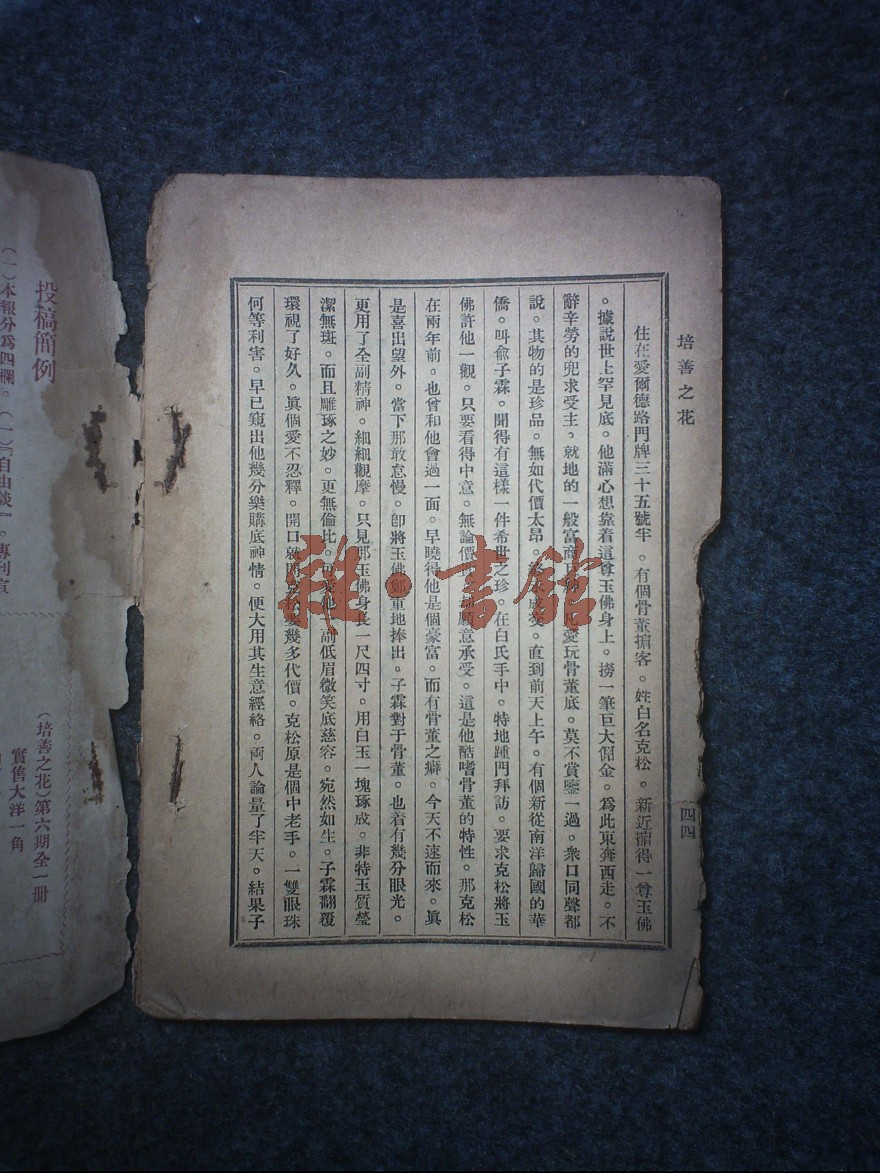 培善之花
四四
住在愛爾德路門牌三十五號半。有個骨董掮客。姓白名克松。新近掮得一尊玉佛
。據說世上罕見底。他滿心想靠着這尊玉佛身上。撈一筆巨大佣金。爲此東奔西走。不
辭辛勞的兜求受主。就地的一般富商巨紳。凡愛玩骨董底。莫不賞鑒一過。衆口同聲都
說。其物的是珍品。無如代價太昂。終未成交。直到前天上午。有個新從南洋歸國的華
僑。叫俞子霖。聞得有這樣一件希世之珍。在白氏手中。特地踵門拜訪。要求克松將玉
佛許他一觀。只要看得中意。無論價值多少都願意承受。這是他酷嗜骨董的特性。那克松
在兩年前。也曾和他會過一面。早曉得他是個豪富。而有骨董之癖。今天不速而來。眞
是喜出望外。當下那敢怠慢。卽將玉佛鄭重地捧出。子霖對于骨董。也着有幾分眼光。
更用了全副精神。細細觀摩。只見那玉佛身長一尺四寸。用白玉一塊琢成。非特玉質瑩
潔無斑。而且雕琢之妙。更無倫比。可愛他一副低眉微笑底慈容。宛然如生。子霖翻覆
環視了好久。眞個愛不忍釋。開口就問克松要幾多代價。克松原是個中老手。一雙眼珠
何等利害。早已窺出他幾分樂購底神情。便大用其生意經絡。兩人論量了半天。結果子
投稿簡例
(一)本報分爲四欄。(一)『自由談』。專刊宣
(培善之花)第六期全一册
實售大洋一角
雜·書館